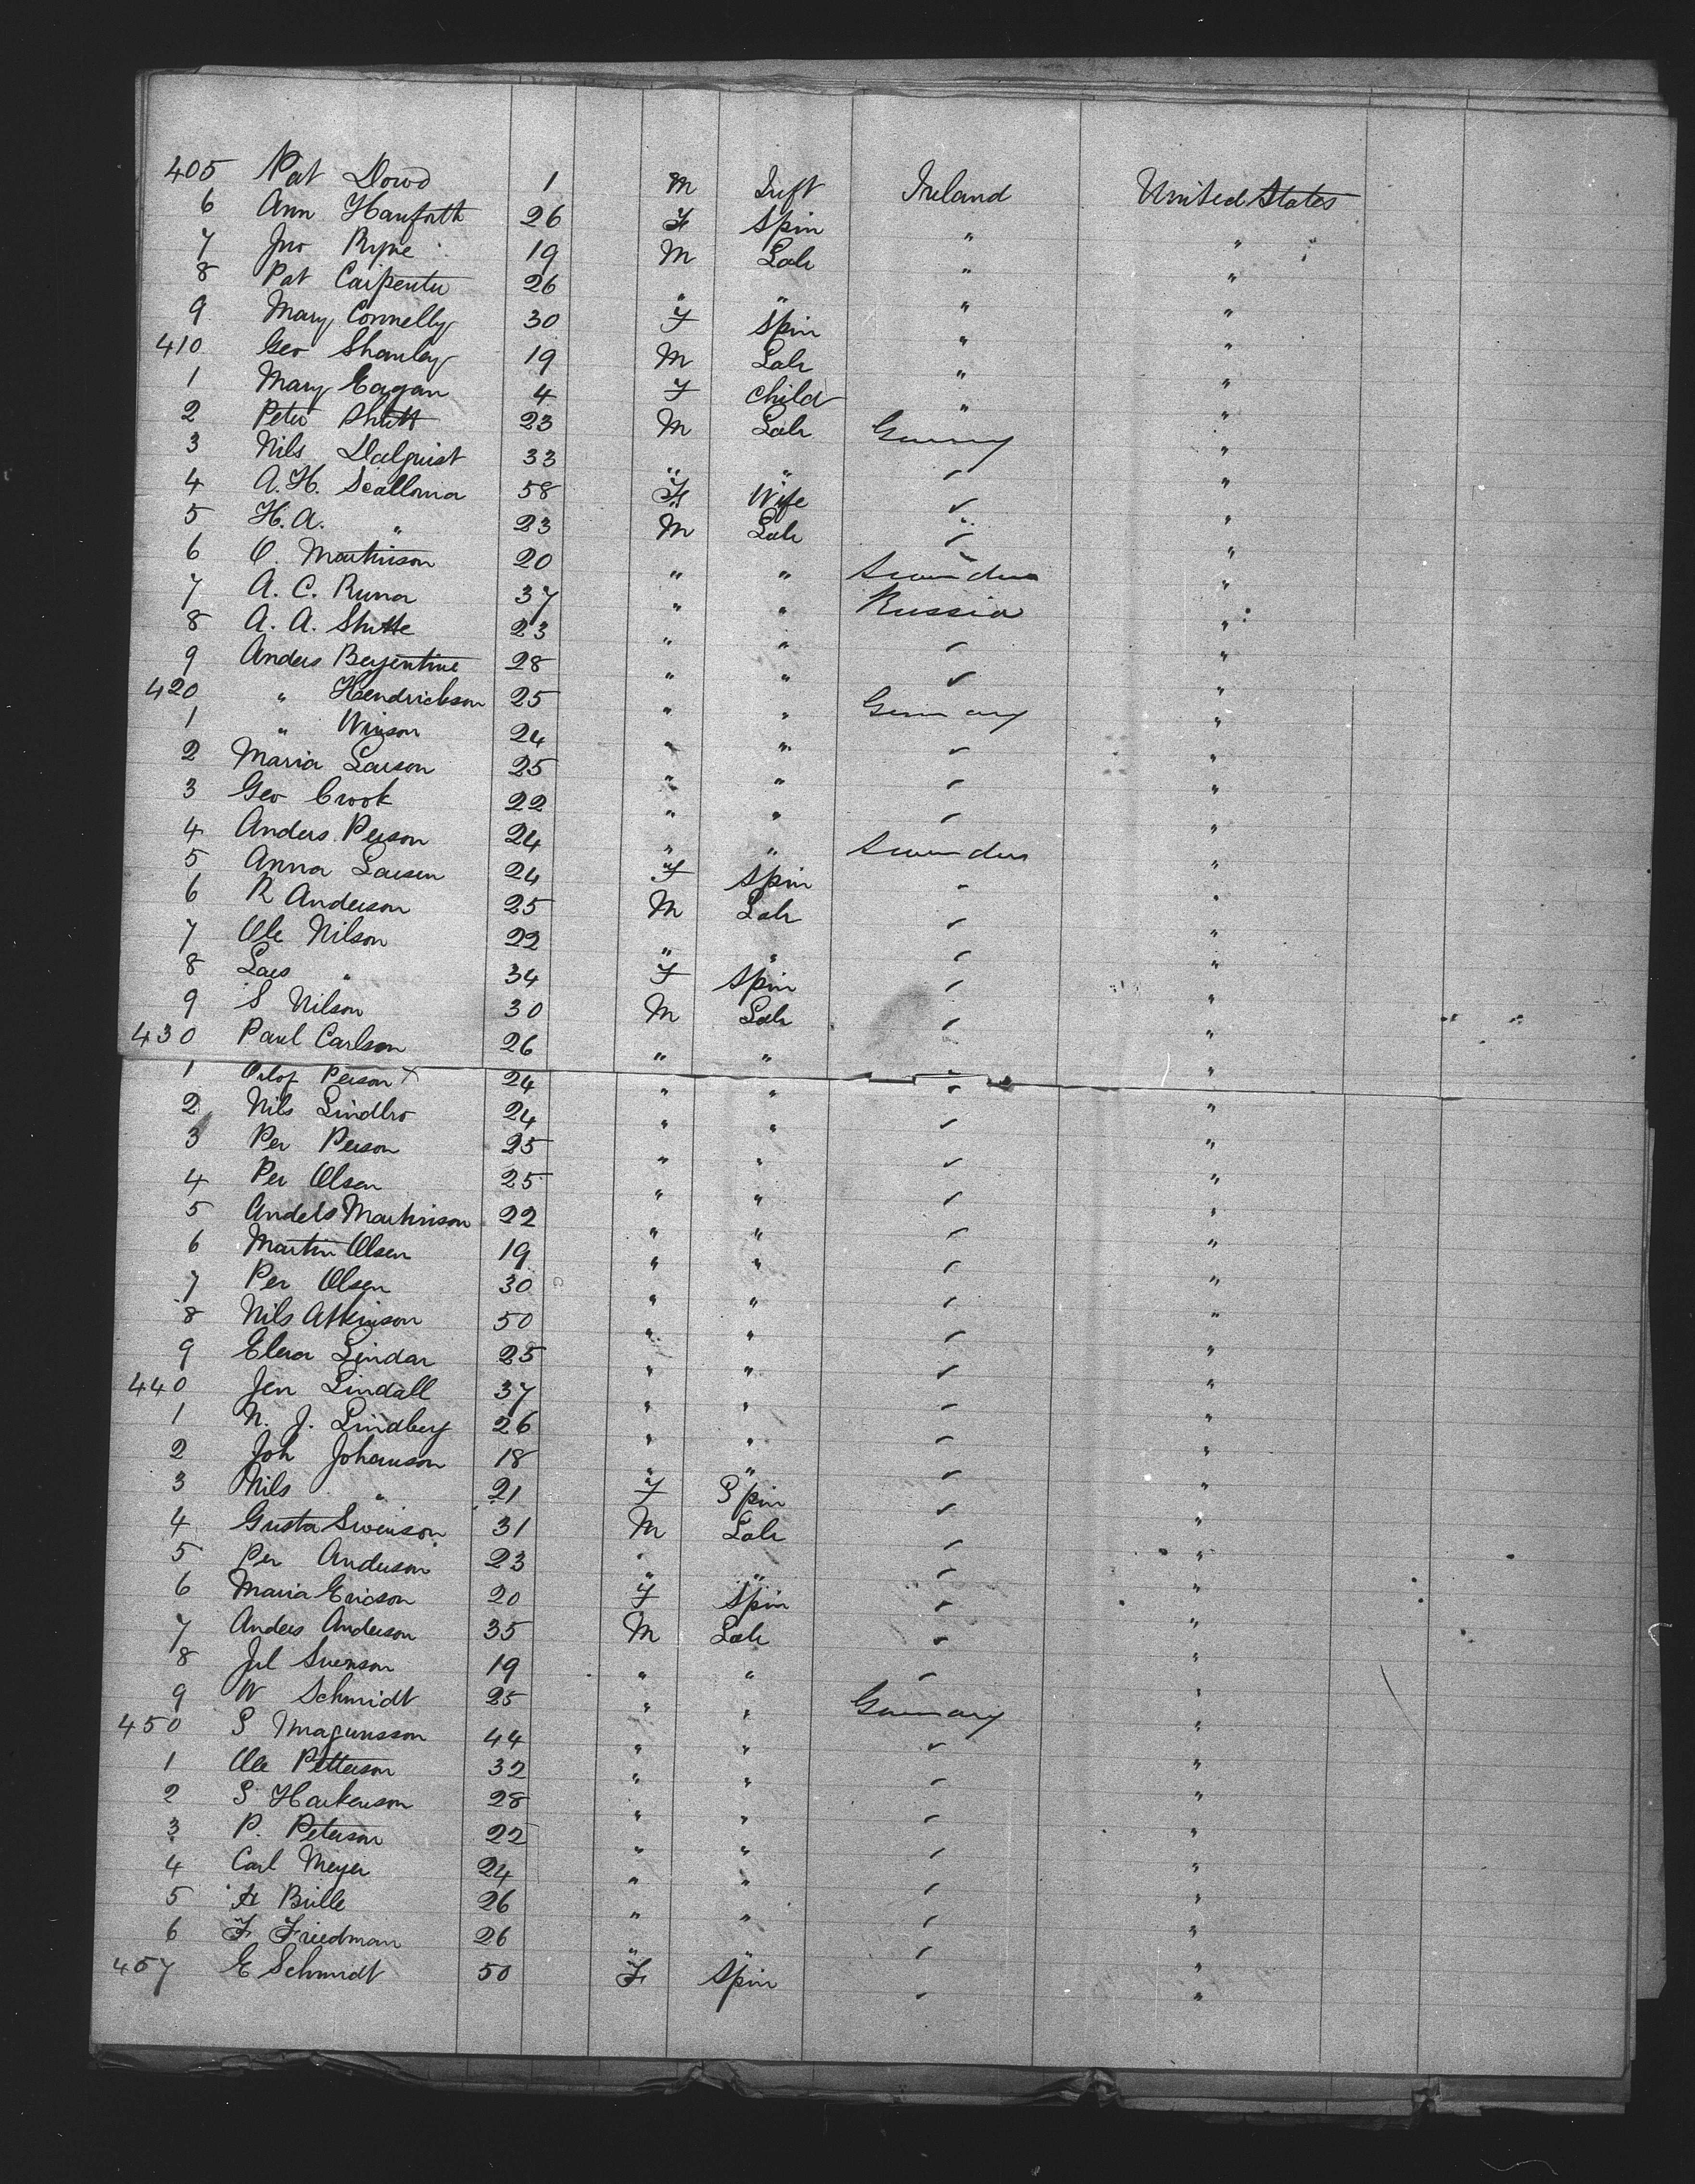 405 Pat Dowd 1 M Inft Ireland United States
6 Ann Hanforth 26 F Spin " "
7 Jno Pyne 19 M Lab " "
8 Pat Carpenter 26 " " " "
9 Mary Connelly 30 F Spin " "
410 Geo Shanley 19 M Lab " "
1 Mary Eagan 4 F Child " "
2 Peter Shutt 23 M Lab Germy "
3 Nils Dalquist 33 " " ✓ "
4 A. H. Scallona 58 F Wife ✓ "
5 H. A. " 23 M Lab ✓ "
6 O. Martinson 20 " " "
7 A. C. Runa 37 " " Russia "
8 A. A. Shutte 23 " " ✓ "
9 Anders 28 " " ✓ "
420 " Hendrickson 25 " " Germany "
1 " Winson 24 " " ✓ "
2 Maria Larson 25 " " ✓ "
3 Geo Crook 22 " " ✓ "
4 Anders Person 24 " " "
5 Anna Larsen 24 F Spin ✓ "
6 R Anderson 25 M Lab ✓ "
7 Ole Nilson 22 " " ✓ "
8 Lars " 34 F Spin ✓ "
9 S Nilson 30 M Lab ✓ "
430 Paul Carlson 26 " " ✓ "
1 Olof Person X 24 " " ✓ "
2 Nils Lindbro 24 " " ✓ "
3 Per Person 25 " " ✓ "
4 Per Olsen 25 " " ✓ "
5 Anders Martinson 22 " " ✓ "
6 Martin Olsen 19 " " ✓ "
7 Per Olsen 30 " " ✓ "
8 Nils Atkinson 50 " " ✓ "
9 Elena Lindar 25 " " ✓ "
440 Jen Lindall 37 " " ✓ "
1 N. J. Lindberg 26 " " ✓ "
2 Joh Johanson 18 " " ✓ "
3 Nils " 21 F Spin ✓ "
4 Gusta Swenson 31 M Lab ✓ "
5 Per Anderson 23 " " ✓ "
6 Maria Ericson 20 F Spin ✓ "
7 Anders Anderson 35 M Lab ✓ "
8 Jul Svenson 19 " " ✓ "
9 W Schmidt 25 " " Germany "
450 S Magunsson 44 " " ✓ "
1 Ole Petterson 32 " " ✓ "
2 S Harkenson 28 " " ✓ "
3 P. Peterson 22 " " ✓ "
4 Carl Meyer 24 " " ✓ "
5 H Bille 26 " " ✓ "
6 F Friedman 26 " " ✓ "
457 E Schmidt 50 F Spin ✓ "